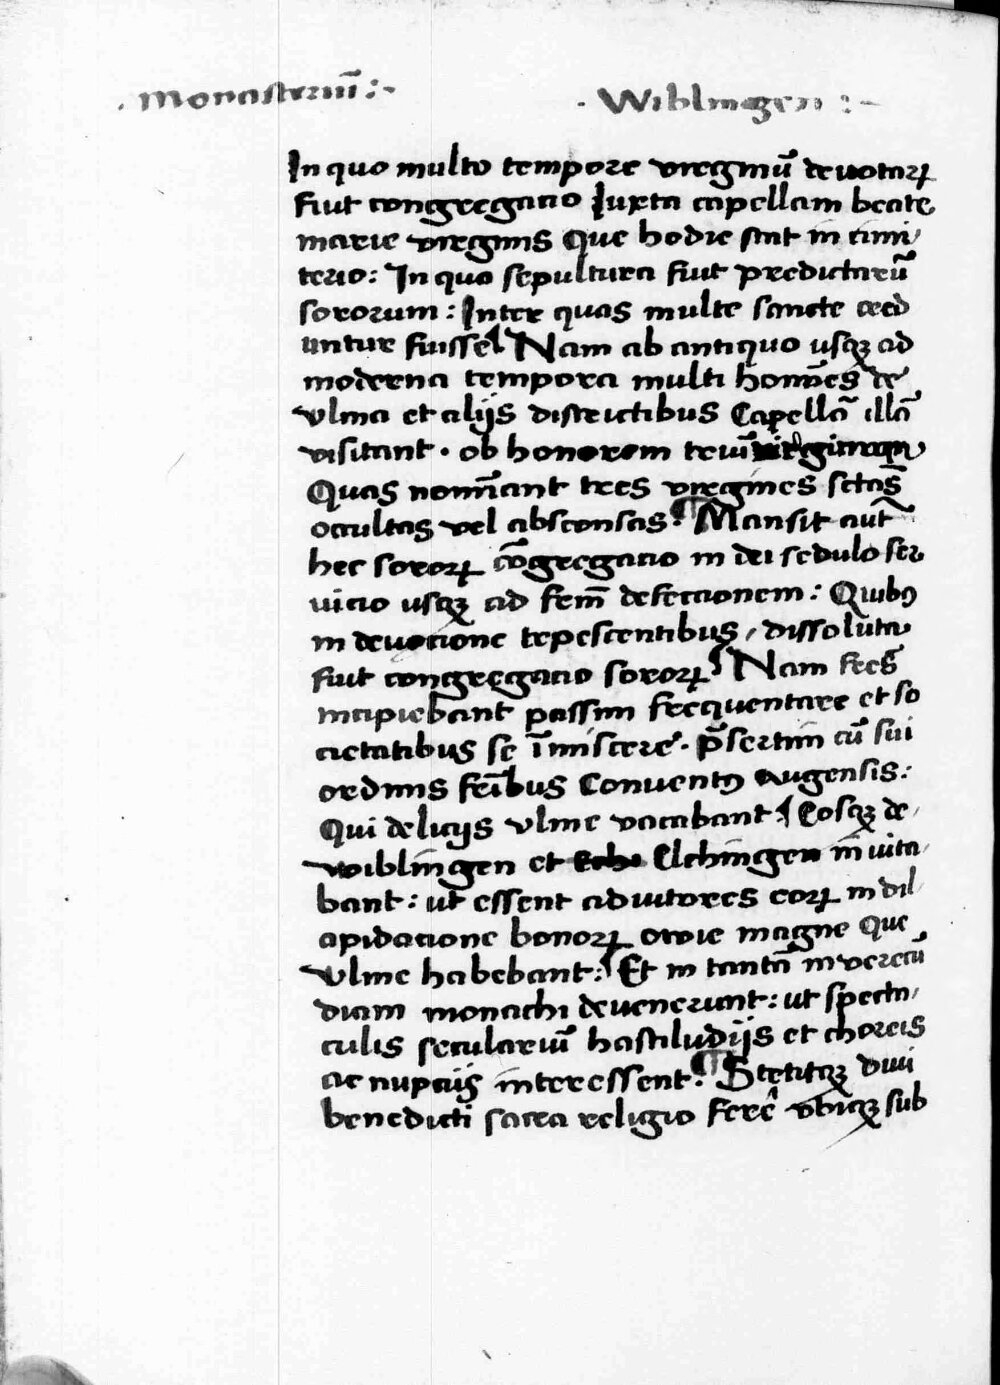 · Monasteriū :- · Wiblingen :-
In quo multo tempore virginū devotarꝝ
fuit congregacio Juxta capellam beate
marie virginis Que hodie stat in cimi
terio: In quo sepultura fuit predictarū
sororum: Inter quas multe sancte cred
untur fuisse Nam ab antiquo usqꝫ ad
moderna tempora multi homīes de
vlma et alijs districtibus Capellā illā
visitant · ob honorem triū virginum
Quas nomīant tres virgines sctās
occultas vel absconsas. ¶ Mansit aut̄
hec sororꝝ cōgregacio in dei sedulo ser
vicio usqꝫ ad frm̄ defectionem: Quibꝯ
in devocione tepescentibus, dissoluta
fuit congregacio sororꝝ Nam frēs
incipiebant passim frequentare et so
cietatibus se īmiscere · p̄sertim cū sui
ordinis frībus Conventꝯ Augensis:
Qui delicijs vlme vacabant: Eosqꝫ de
wiblingen et Elchingen invita
bant: ut essent adiutores eorꝝ in dil
apidacione bonorꝝ curie magne Que
vlme habebant: Et in tantū inverecū
diam monachi devenerunt: ut specta
culis seculariū hastiludijs et choreis
ac nupcijs interessent. ¶ Stetitqꝫ divi
benedicti sacra religio ferē vbiqꝫ sub